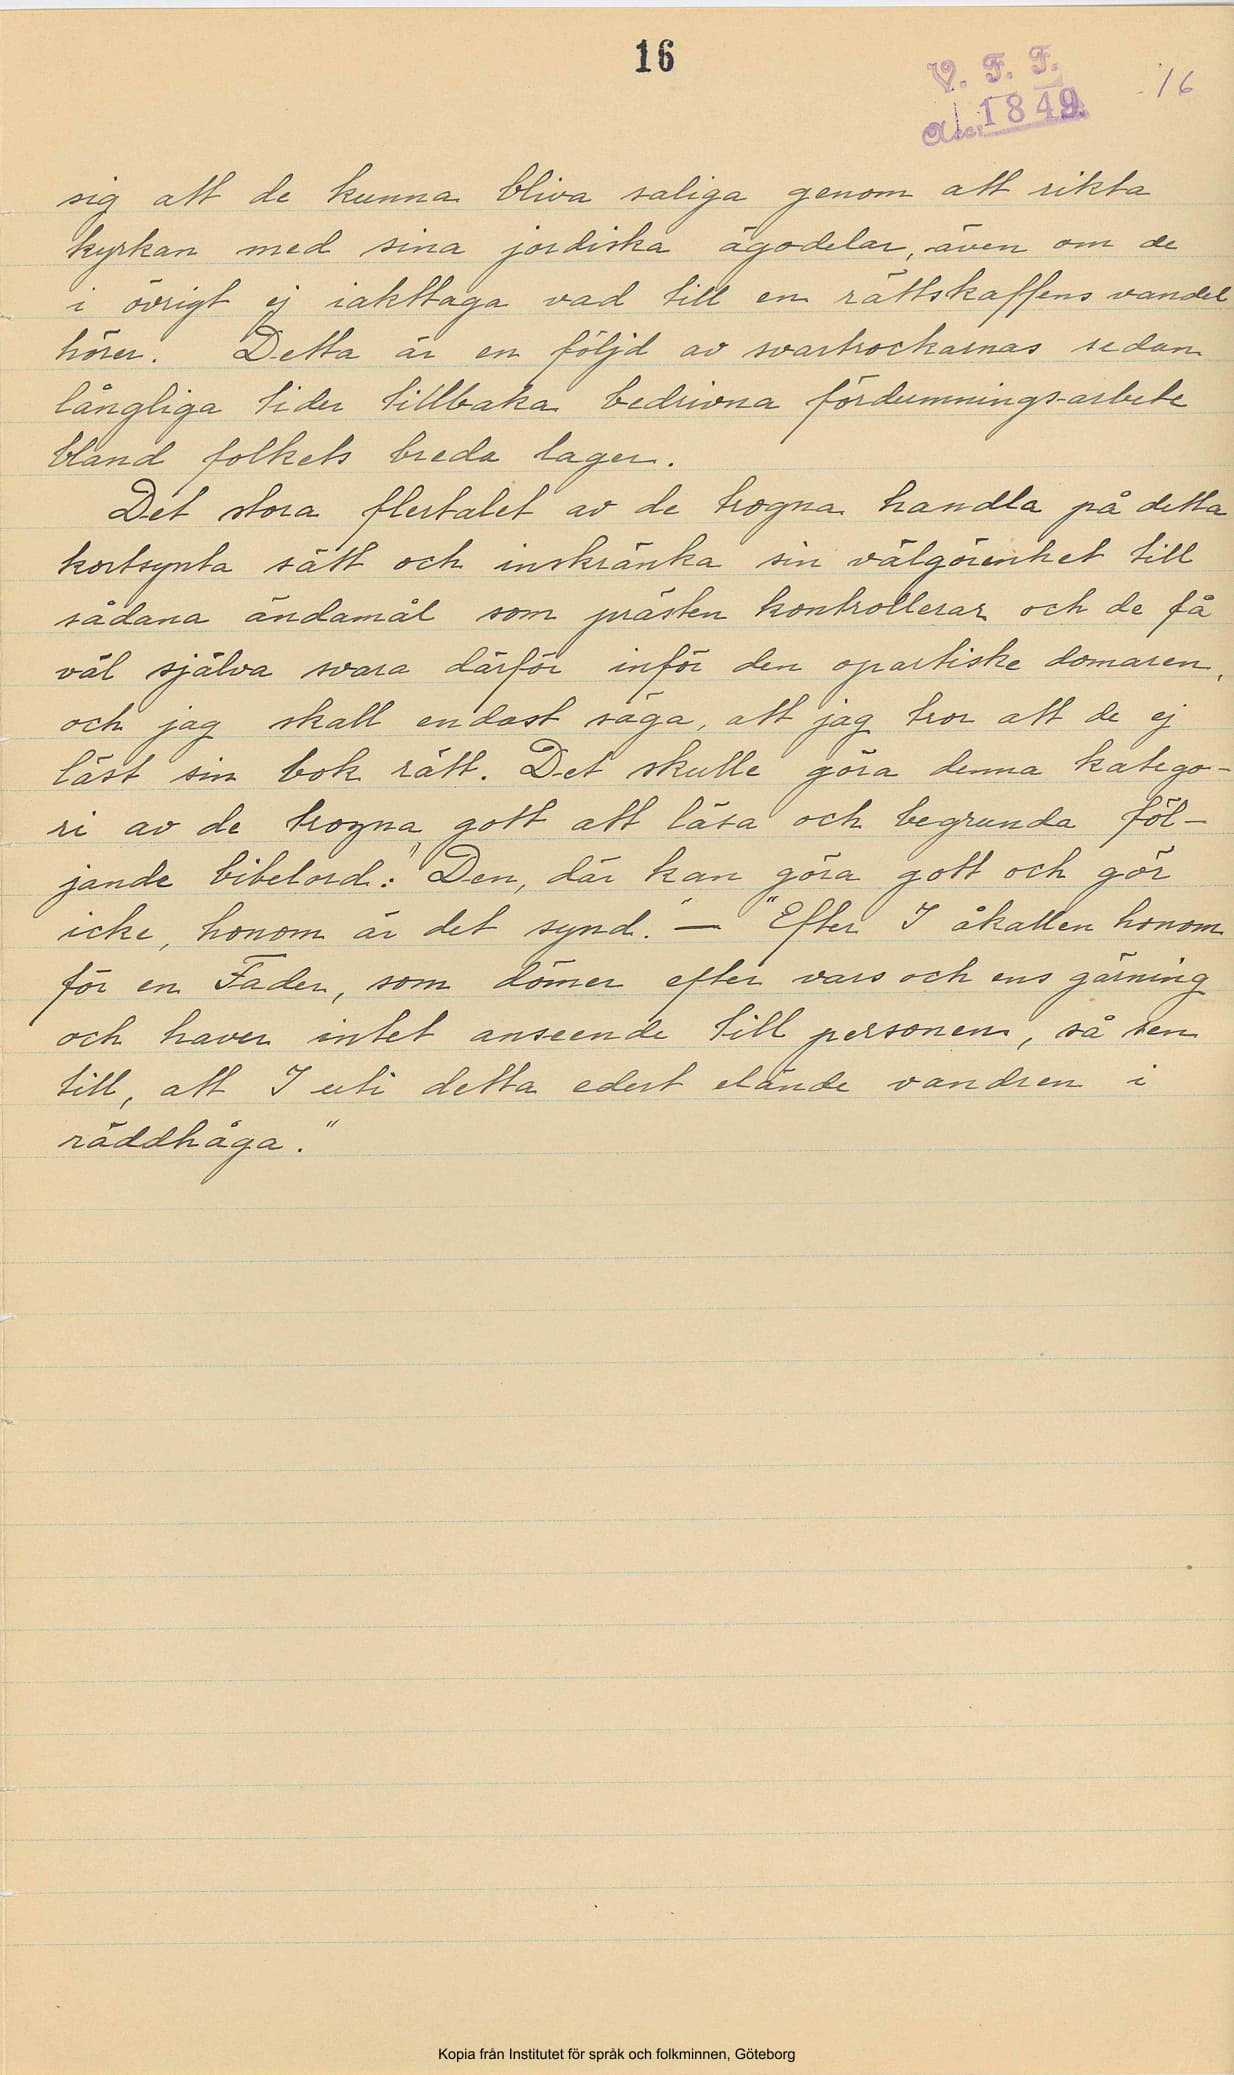 16
V. F. F.
Acc. 1849.
16
sig att de kunna bliva saliga genom att rikta
kyrkan med sina jordiska ägodelar, även om de
i övrigt ej iakttaga vad till en rättskaffens vandel
hörer. Detta är en följd av svartrockarnas sedan
långliga tider tillbaka bedrivna fördummings-arbete
bland folkets breda lager.
Det stora flertalet av de trogna handla på detta
kortsynta sätt och inskränka sin välgörenhet till
sådana ändamål som prästen kontrollerar och de få
väl själva svara därför inför den opartiske domaren,
och jag skall endast säga, att jag tror att de ej
läst sin bok rätt. Det skulle göra denna katego-
ri av de trogna gott att läsa och begrunda föl-
jande bibelord: "Den, där kan göra gott och gör
icke, honom är det synd." — "Efter I åkallen honom
för en Fader, som dömer efter vars och ens gärning
och haver intet anseende till personen, så sen
till, att I uti detta edert elände vandren i
räddhåga."
Kopia från Institutet för språk och folkminnen, Göteborg